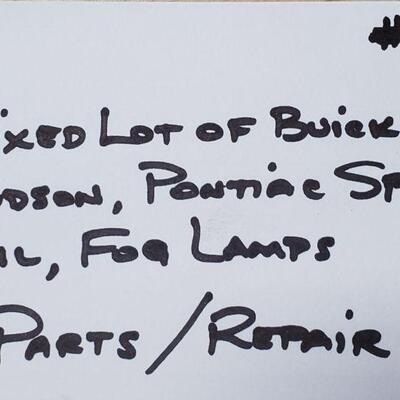 #
ixed Lot of Buick
dson, Pontiac Sp
il, Fog Lamps
Parts/Repair